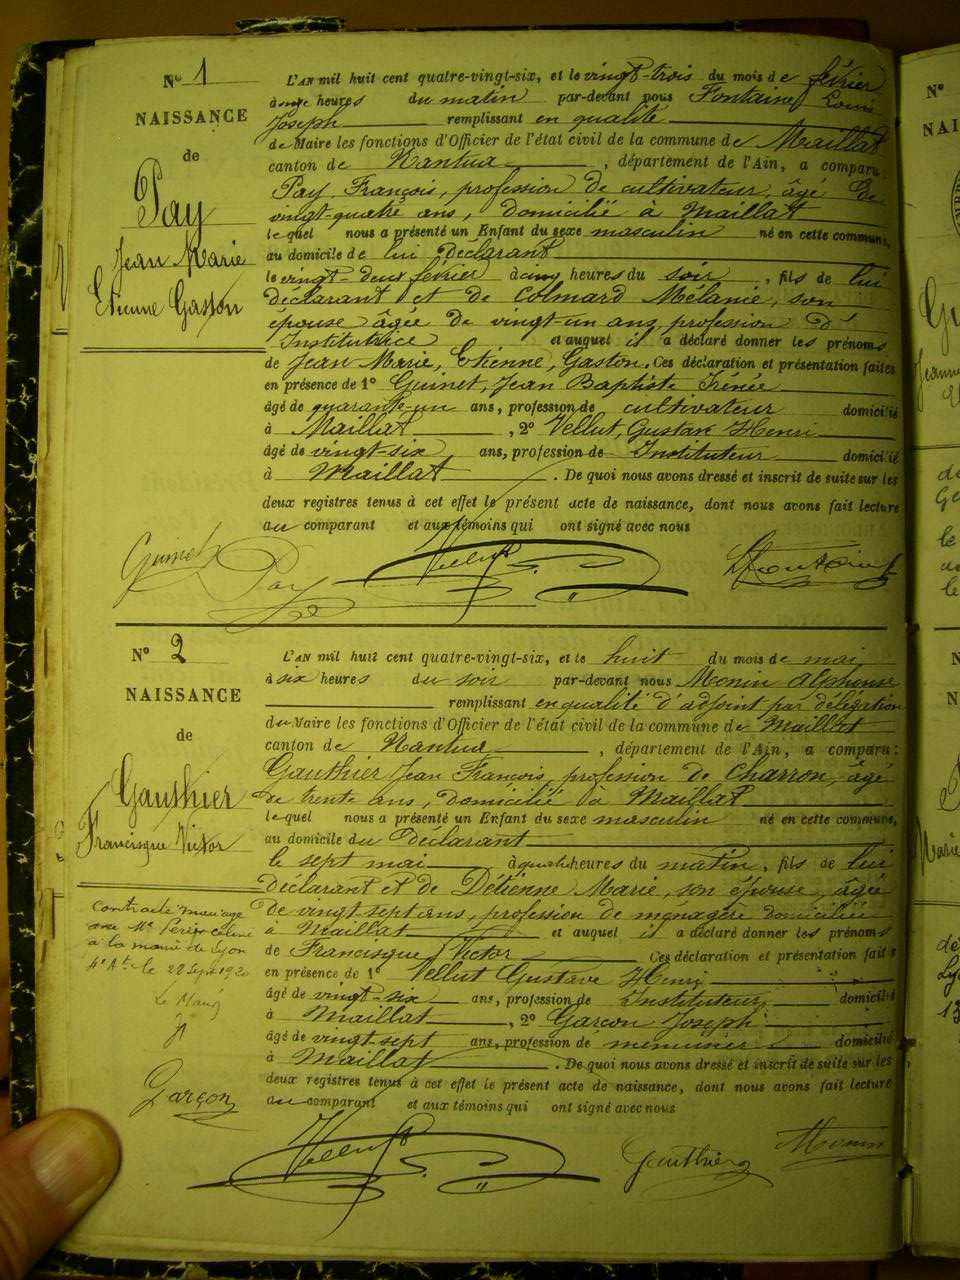 N° 1
NAISSANCE
de
Pay
Jean Marie
Etienne Gaston
L'AN mil huit cent quatre-vingt-six, et le vingt-trois du mois de février
à onze heures du matin par-devant nous Fontaine Louis
Joseph remplissant en qualité
de Maire les fonctions d'Officier de l'état civil de la commune de Maillat
canton de Nantua, département de l'Ain, a comparu:
Pay François, profession de cultivateur, âgé de
vingt-quatre ans, domicilié à Maillat
lequel nous a présenté un Enfant du sexe masculin né en cette commune,
au domicile de lui déclarant
le vingt-deux février à cinq heures du soir, fils de lui
déclarant et de Colmard Mélanie, son
épouse âgée de vingt-un ans, profession d'
Institutrice et auquel il a déclaré donner les prénoms
de Jean Marie, Etienne, Gaston. Ces déclaration et présentation faites
en présence de 1° Guinet, Jean Baptiste Irénée
âgé de quarante-un ans, profession de cultivateur domicilié
à Maillat, 2° Vellut, Gustave Henri
âgé de vingt-six ans, profession de Instituteur domicilié
à Maillat. De quoi nous avons dressé et inscrit de suite sur les
deux registres tenus à cet effet le présent acte de naissance, dont nous avons fait lecture
au comparant et aux témoins qui ont signé avec nous
Guinet Pay Vellut Fontaine
N° 2
NAISSANCE
de
Gauthier
Francisque Victor
L'AN mil huit cent quatre-vingt-six, et le huit du mois de mai
à six heures du soir par-devant nous Monin Alphonse
remplissant en qualité d'adjoint par délégation
du Maire les fonctions d'Officier de l'état civil de la commune de Maillat
canton de Nantua, département de l'Ain, a comparu:
Gauthier Jean François, profession de Charron, âgé
de trente ans, domicilié à Maillat
lequel nous a présenté un Enfant du sexe masculin né en cette commune,
au domicile du déclarant
le sept mai à quatre heures du matin, fils de lui
déclarant et de Détienne Marie, son épouse, âgée
de vingt-sept ans, profession de ménagère domiciliée
à Maillat et auquel il a déclaré donner les prénoms
de Francisque Victor Ces déclaration et présentation faites
en présence de 1° Vellut Gustave Henri
âgé de vingt-six ans, profession de Instituteur, domicilié
à Maillat, 2° Garçon Joseph
âgé de vingt-sept ans, profession de menuisier domicilié
à Maillat. De quoi nous avons dressé et inscrit de suite sur les
deux registres tenus à cet effet le présent acte de naissance, dont nous avons fait lecture
au comparant et aux témoins qui ont signé avec nous
Contracté mariage
à la mairie de Lyon
4e At le 22 Sept 1920
Garçon
Vellut Gauthier Monin